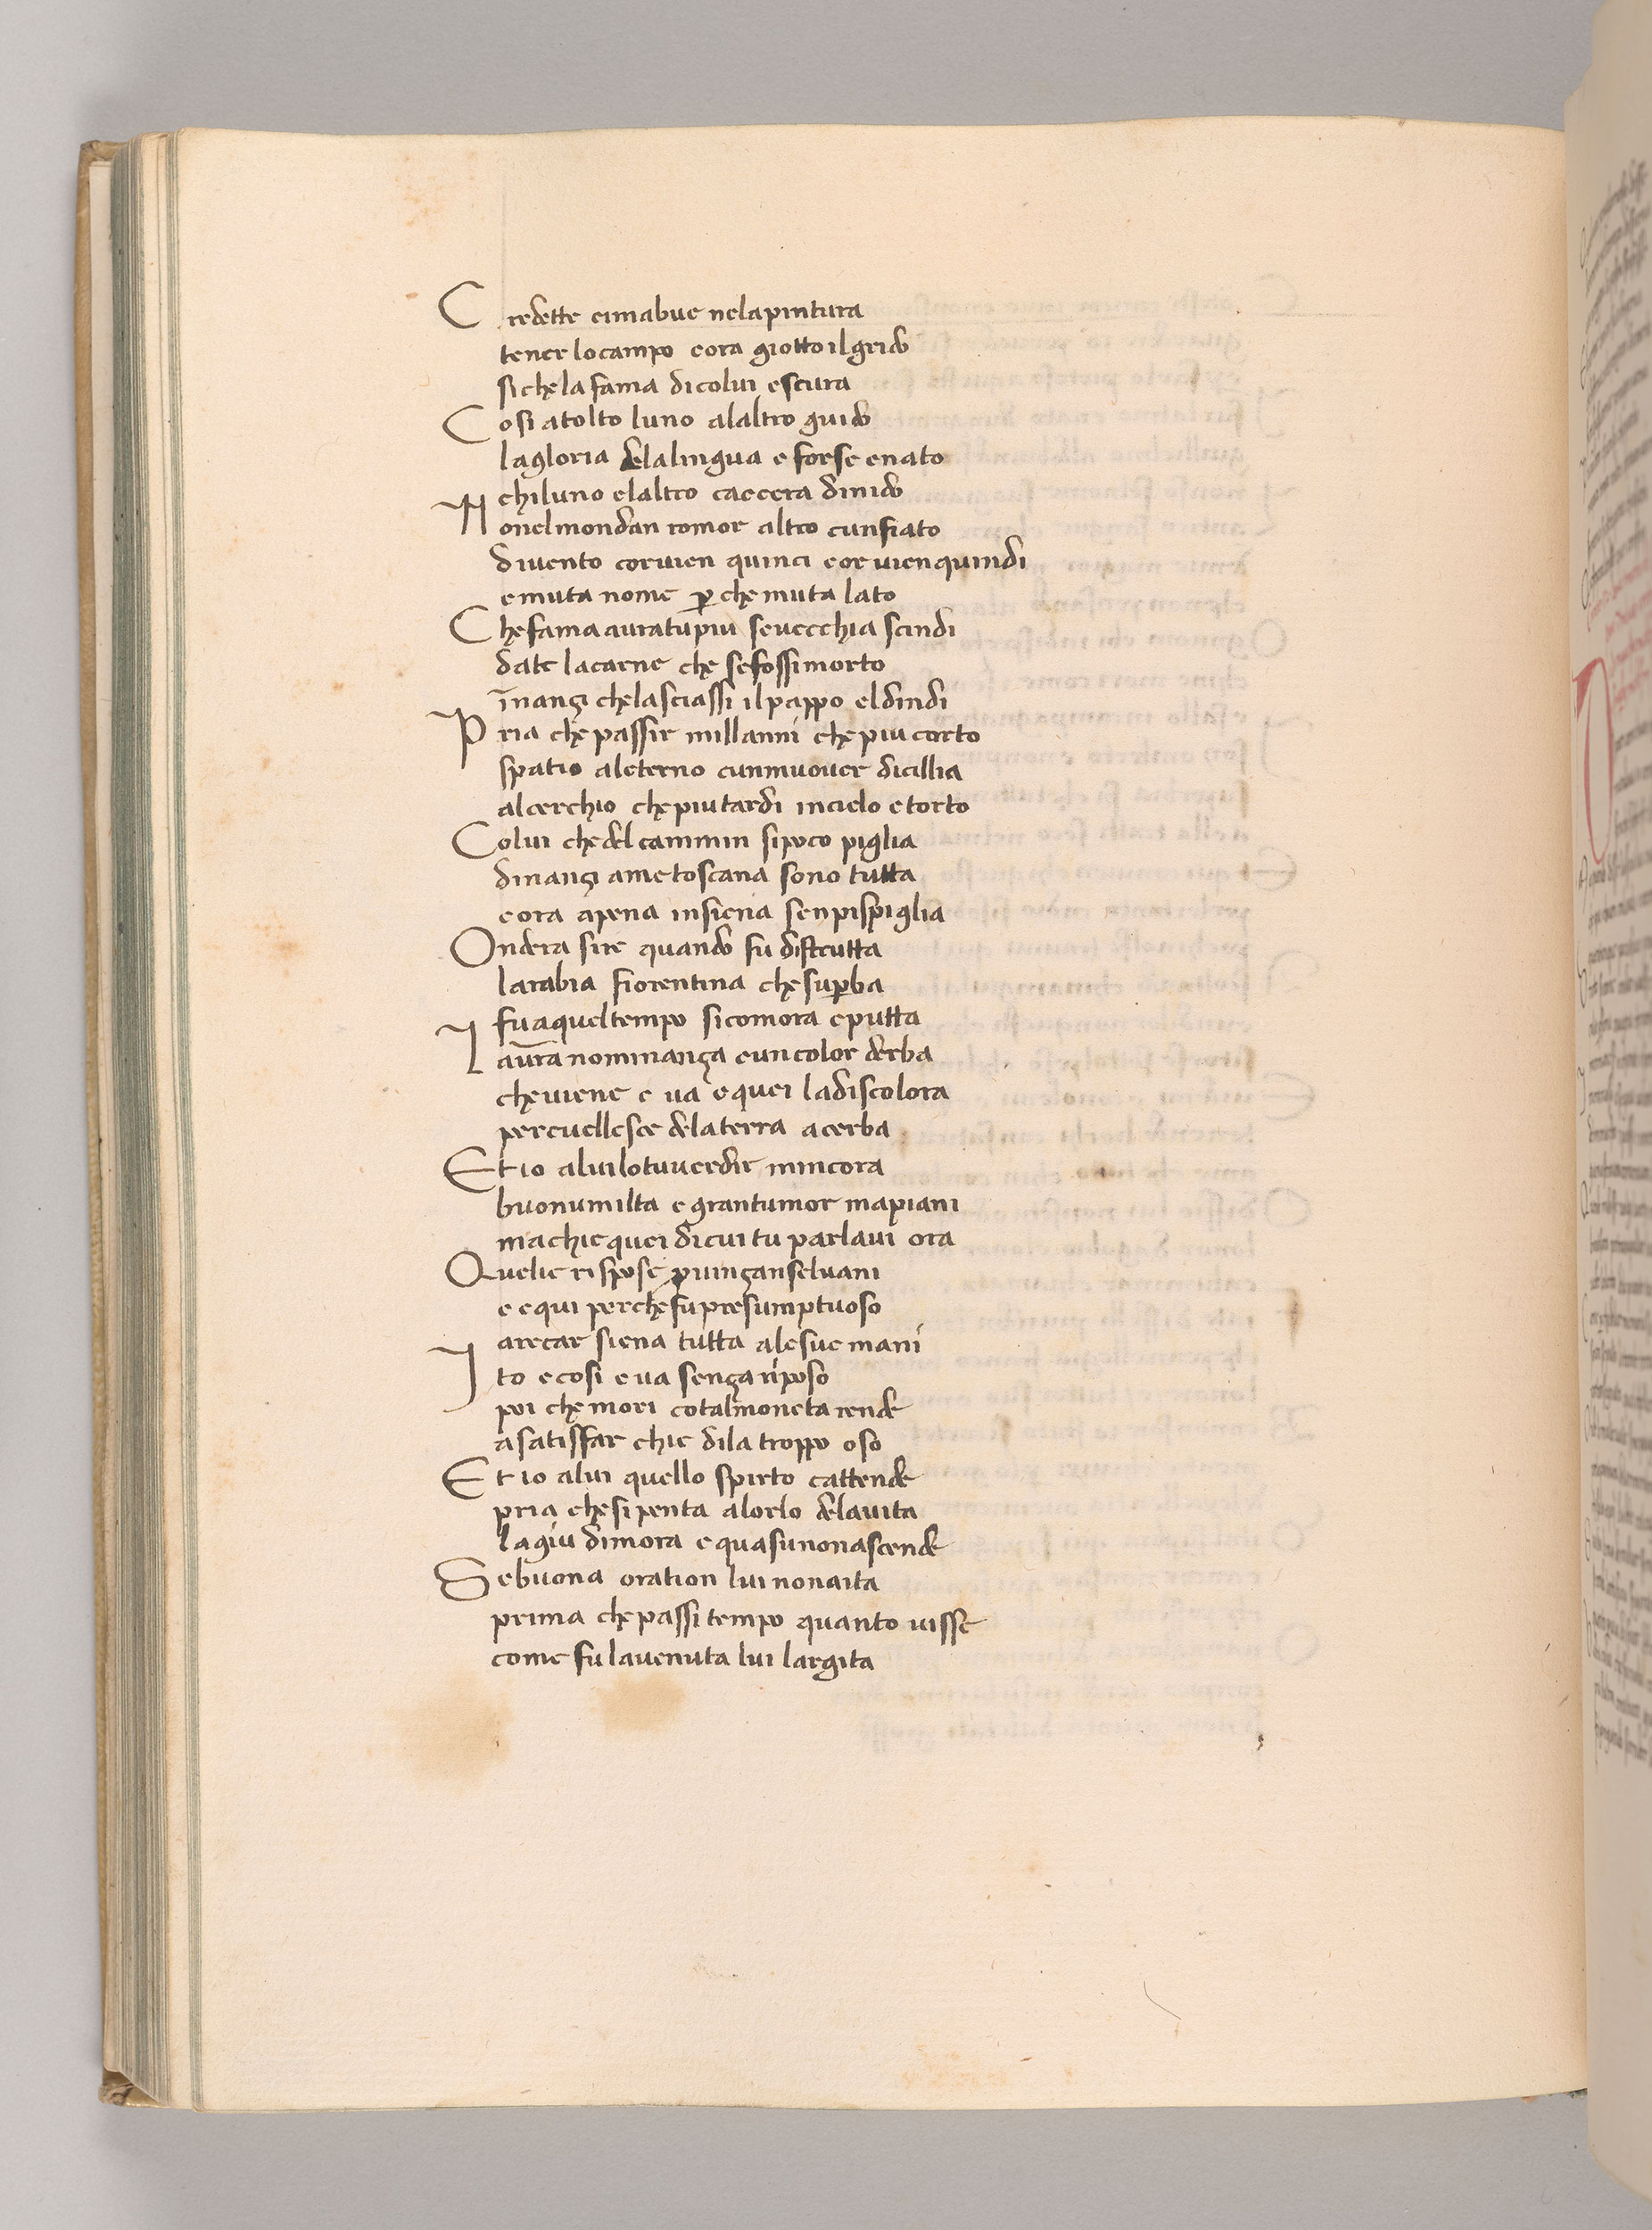 Credette cimabue nela pintura
tener lo campo e ora giotto il grido
si che la fama di colui e scura
Cosi a tolto luno alaltro guido
la gloria dela lingua e forse e nato
chi luno e laltro caccera di nido
Non el mondan romor altro cun fiato
di vento cor vien quinci e or vien quindi
e muta nome p che muta lato
Che fama aura tu piu se vecchia scindi
da te la carne che se fossi morto
īnanzi che lasciassi il pappo el dindi
Pria che passir mill anni che piu corto
spatio al eterno cun muover di cillia
al cerchio che piu tardi in cielo e torto
Colui che del cammin si poco piglia
dinanzi a me toscana sono tutta
e ora apena in siena sen pispiglia
Ondera sire quando fu distrutta
la rabia fiorentina che supba
fu a quel tempo si como ra e putta
La vr̄a nominanza e un color derba
che viene e va e quei la discolora
per cu ellesce dela terra acerba
Et io a lui lo tu uer dir mincora
buon umilta e gran tumor ma piani
ma chi e quei di cui tu parlavi ora
Quel ie rispose puinzan selvani
e e qui perche fu presumptuoso
a recar siena tutta ale sue mani
Ito e cosi e va senza riposo
poi che mori cotal moneta rende
a satisffar chi e di la troppo oso
Et io a lui quello spirto cattende
pria che si penta a lorlo dela vita
la giu dimora e qua su non ascende
Se buona oration lui non aita
prima che passi tempo quanto visse
come fu la venuta lui largita